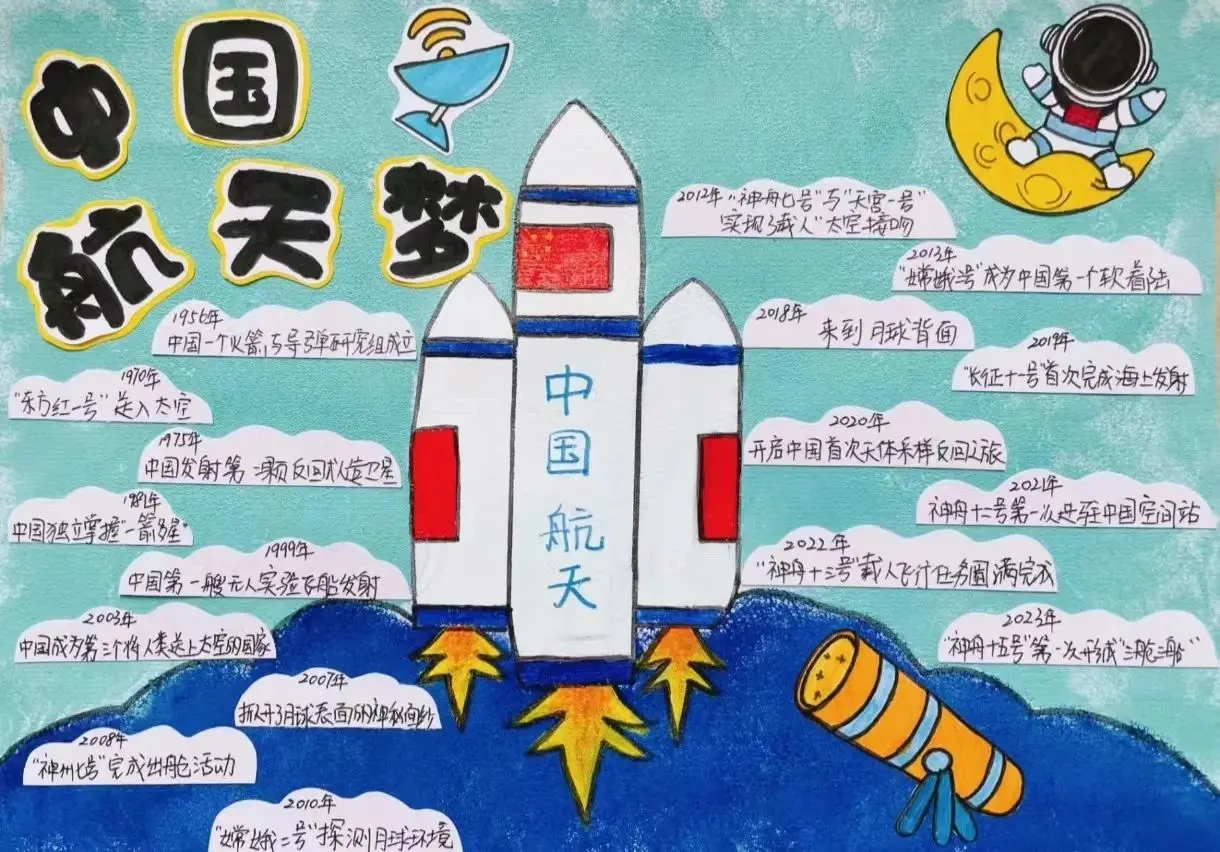 中国
航天梦
1956年
中国一个火箭与导弹研究组成立
1970年
"东方红一号"进入太空
1975年
中国发射第一颗反回人造卫星
1981年
中国独立掌握"一箭多星"
1999年
中国第一艘无人实验飞船发射
2003年
中国成为第三个将人类送上太空的国家
2007年
揭开了月球表面的神秘面纱
2008年
"神州七号"完成出舱活动
2010年
"嫦娥二号"探测月球环境
中国航天
2012年"神舟七号"与"天宫一号"
实现了载人"太空接吻
2013年
"嫦娥三号"成为中国第一个软着陆
2018年
来到月球背面
2019年
"长征十一号"首次完成海上发射
2020年
开启中国首次天体采样反回之旅
2021年
神舟十二号第一次进驻中国空间站
2022年
"神舟十三号"载人飞行任务圆满完成
2023年
"神舟十五号"第一次形成"三舱三船"